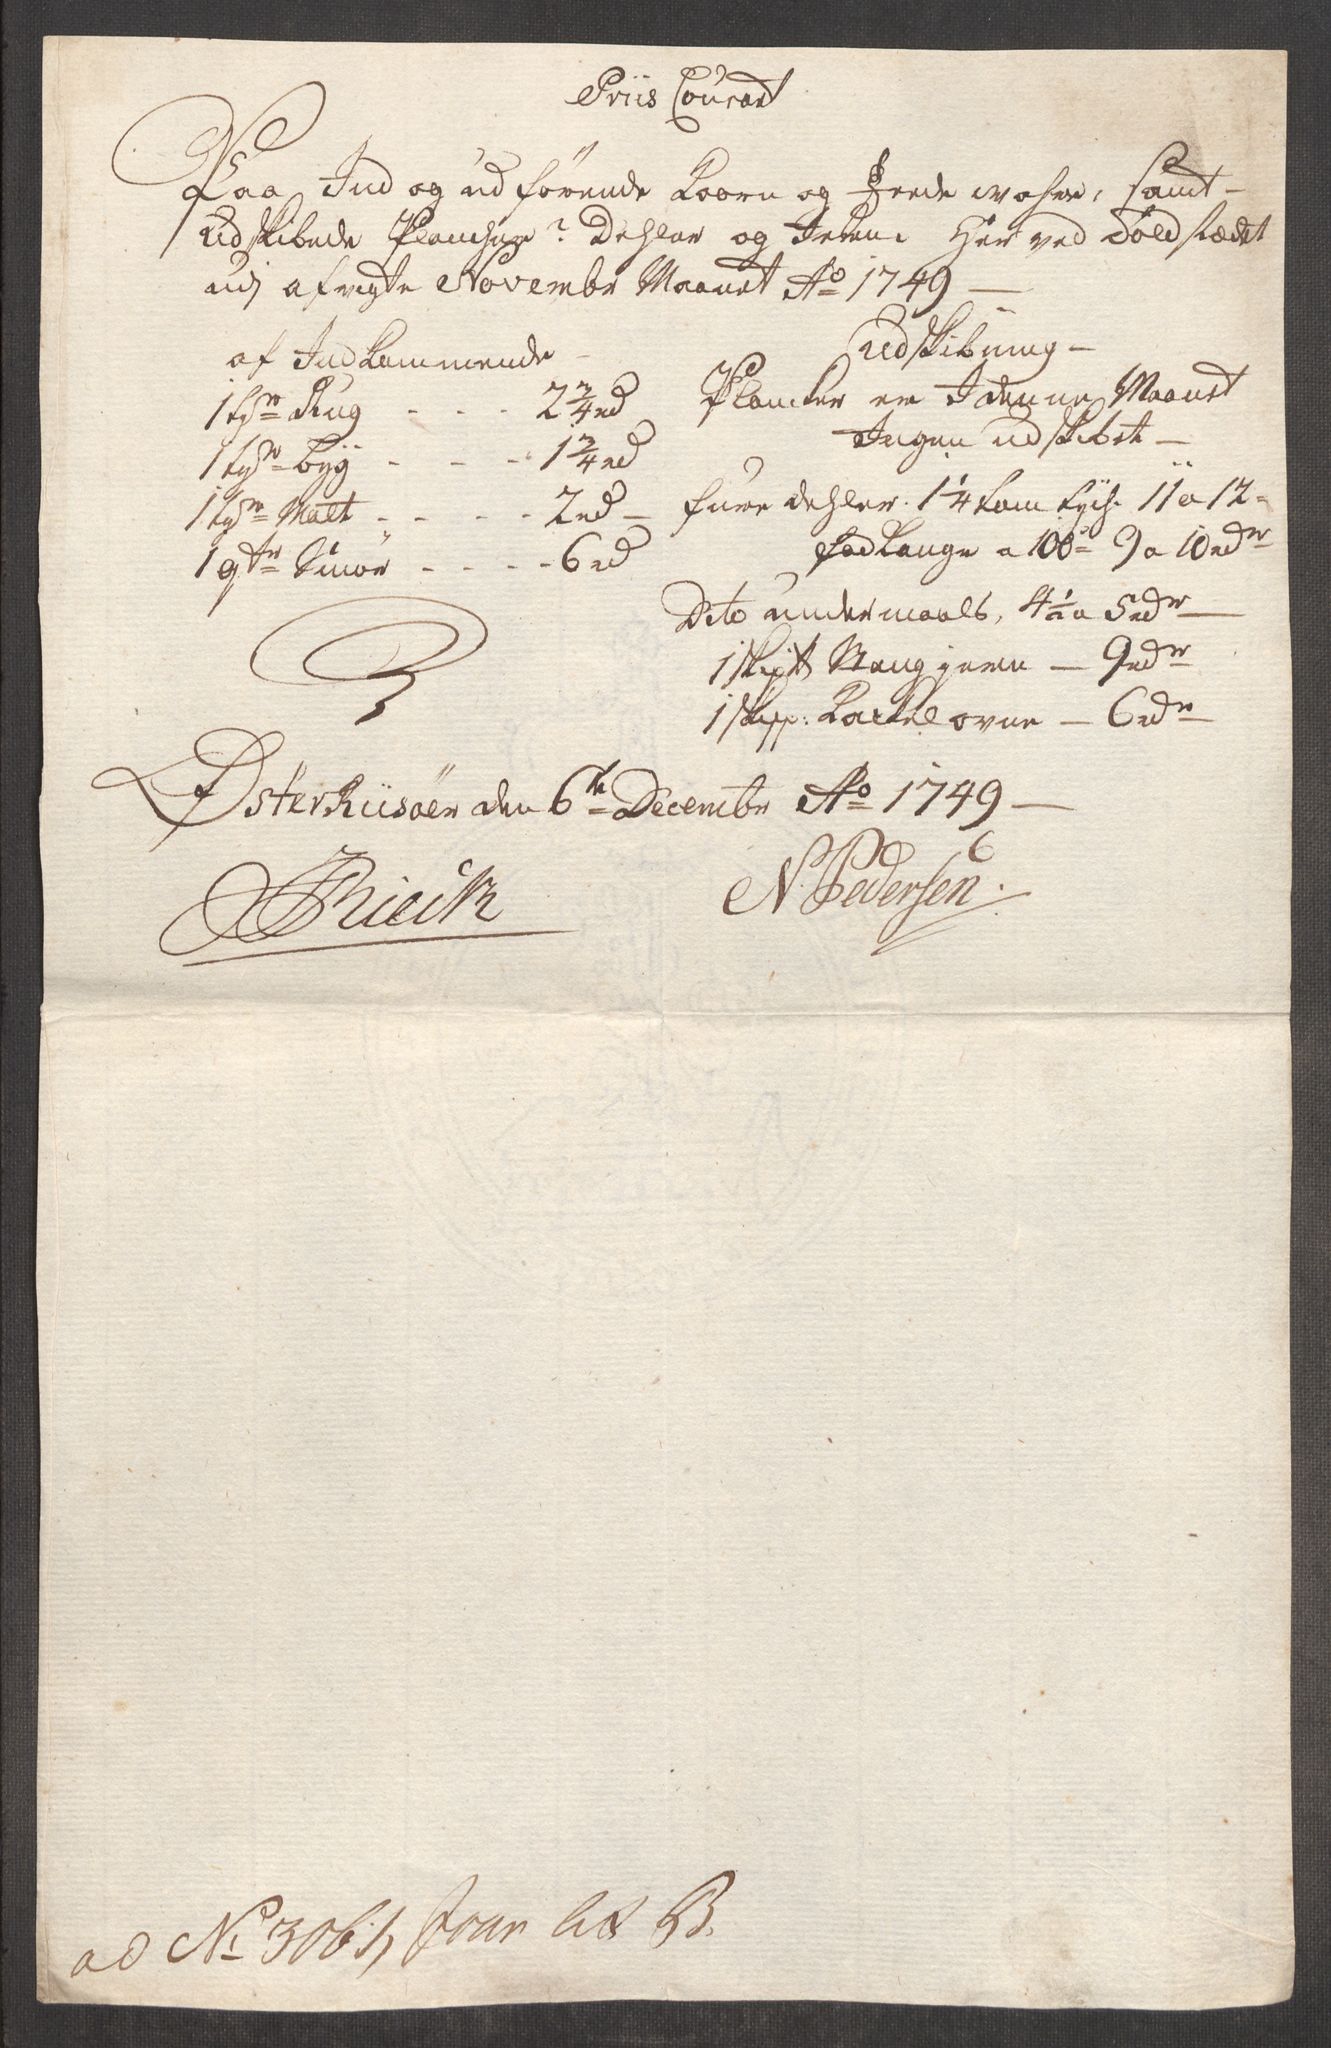 Priis Courant
Paa Ind og ud förende Koorn og Feede wahre, samt
Udskibede Plancher? Dehler og Jern Her ved Toldstædet
udj afvigte Novembr Maanet Ao 1749
af Indkommende
1 tör Rug - - - 2 3/4 rd
1 tör Byg - - - 1 3/4 rd
1 tör Malt - - - - 2 rd
1 qtr Smör - - - - 6 rd
Udskibning
Plancker er I denne Maanet
Ingen udskibet
fure dehler. 1 1/4 tom tych. 11 a 12
fod Lange a 100de 9 a 10 rdr
Dito undermaals, 4 1/2 a 5 rdr
1 skipt Stangjern - 9 rdr
1 skipp: Kackelovne - 6 rdr
Østerriisöer den 6te Decembr Ao 1749
Rieck
N. Pedersen.
ad No 3061, Jour Lit B.